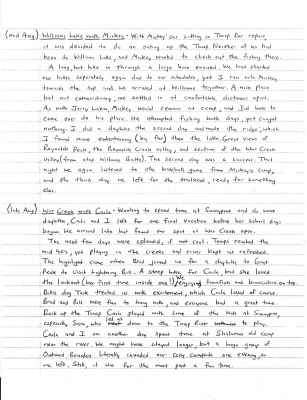 (mid Aug) Williams Lake with Mickey - With Mickey's car sitting in Twisp for repair,
it was decided to do an outing up the Twisp. Neither of us had
been to Williams Lake, and Mickey wanted to check out the fishing there.
A long, hot hike is through a large burn ensued. We had started
our hikes separately again due to our schedules, yet I ran into Mickey
towards the top and we arrived at Williams together. A nice place
but not extraordinary, we settled in at comfortable distances apart.
As with Jerry Lakes, Mickey would remain at camp, and I'd have to
come over to his place. He attempted fishing both days, yet caught
nothing. I did a dayhike the second day and made the ridge, which
I found more entertaining (by far) than the lake. Great views of
Reynolds Peak, the Reynolds Creek valley, and section of the War Creek
valley (from atop Williams Butte). The second day was a success. That
night we again listened to the baseball game from Mickey's camp,
and the third day we left for the trailhead, ready for something
else.
(late Aug) War Creek with Carla - Wanting to spend time at Sunnypine and do some
dayhikes, Carla and I left for one final vacation before her school days
began. We arrived late but found our spot at War Creek open.
The next few days were splendid, if not cool. Temps reached the
mid 80's, yet playing in the creeks and river kept us refreshed.
The highlight came when Brad joined us for a dayhike to Goat
Peak to visit Lightning Bill. A steep hike for Carla, but she loved
the lookout (her first time inside one!) enjoying trailfish and binoculars on top.
Bill's dog Tork treated us with excitement, which Carla loved of course.
Brad and Bill were fun to hang with, and everyone had a great time.
Back up the Twisp Carla played with some of the kids at Sunnypine,
especially Sam, who led us down to the Twisp River to play.
Carla and I on another day spent time at Shilamus old camp
near the river. We might have stayed longer, but a huge group of
Outward Bounders literally invaded our cozy campsite one evening, so
we left. Still, it was for the most part a fun time.